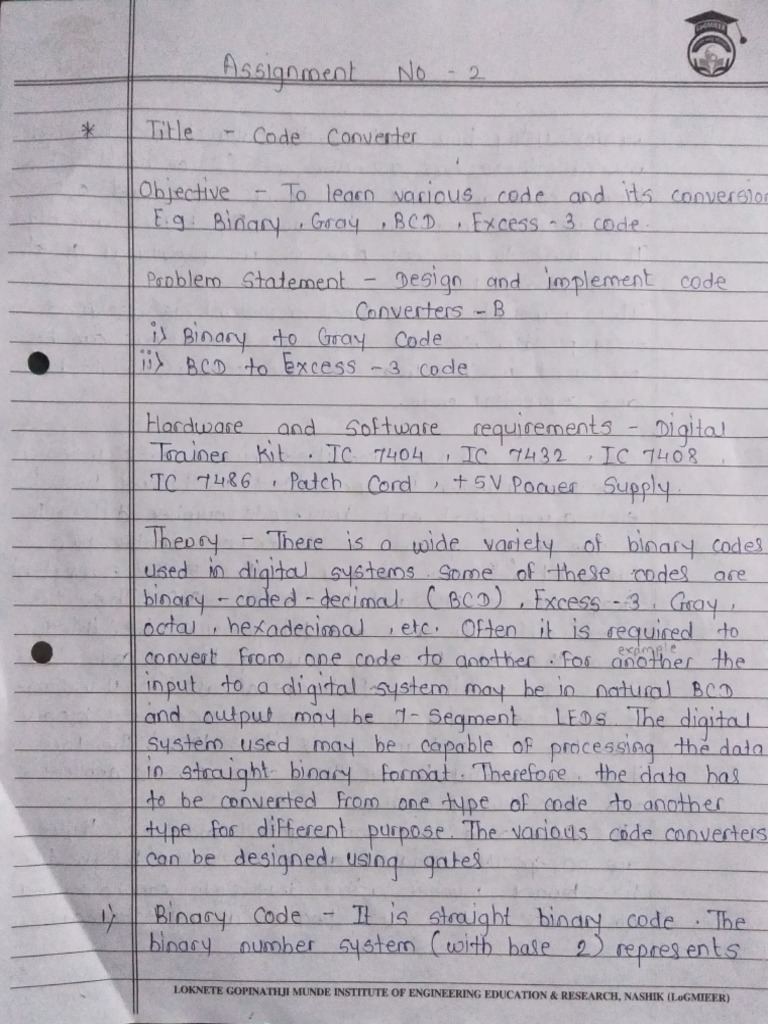 Assignment No - 2
* Title - Code Converter
Objective - To learn various code and its conversion
E.g. Binary, Gray, BCD, Excess-3 code.
Problem Statement - Design and implement code
Converters - B
i) Binary to Gray Code
ii) BCD to Excess-3 code
Hardware and Software requirements - Digital
Trainer Kit. IC 7404, IC 7432, IC 7408
IC 7486, Patch Cord, +5V Power Supply.
Theory - There is a wide variety of binary codes
used in digital systems. Some of these codes are
binary-coded-decimal (BCD), Excess-3, Gray,
octal, hexadecimal, etc. Often it is required to
convert from one code to another. For another the
example
input to a digital system may be in natural BCD
and output may be 7-Segment LEDs. The digital
system used may be capable of processing the data
in straight binary format. Therefore, the data has
to be converted from one type of code to another
type for different purpose. The various code converters
can be designed using gates
1) Binary Code - It is straight binary code. The
binary number system (with base 2) represents
LOKNETE GOPINATHJI MUNDE INSTITUTE OF ENGINEERING EDUCATION & RESEARCH, NASHIK (LoGMIEER)